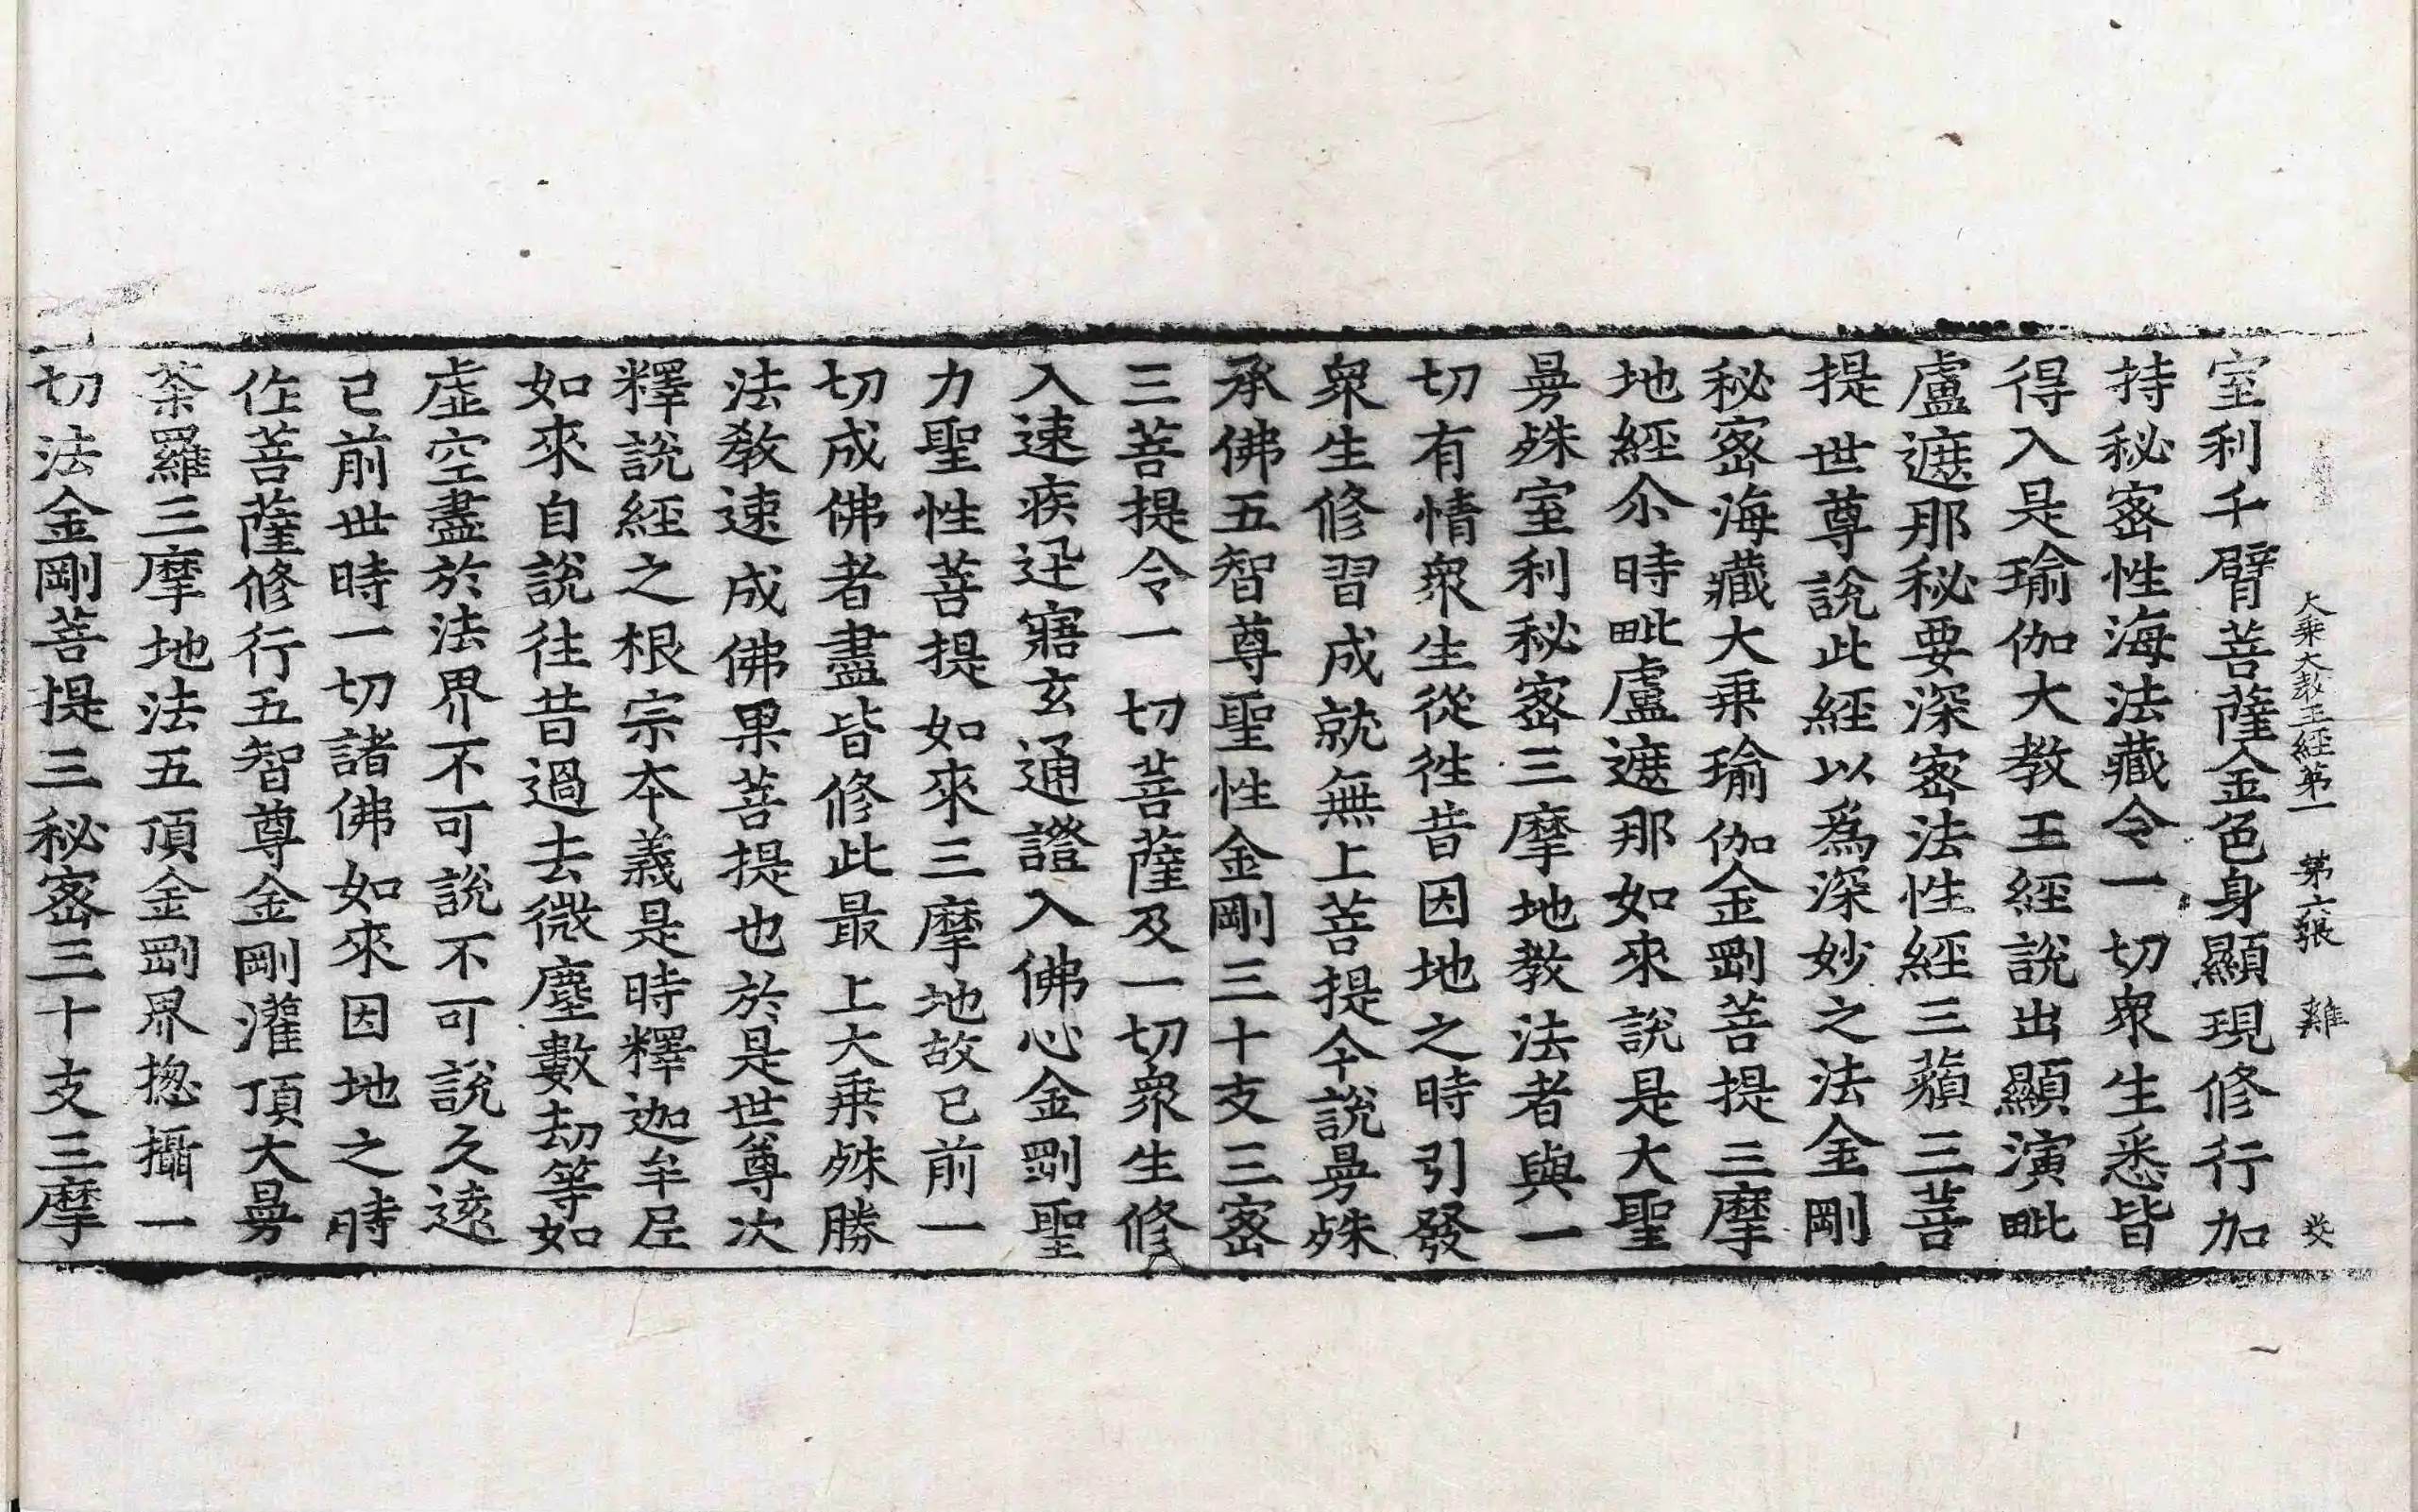 大乘大教王經第一 第六張 難
室利千臂菩薩金色身顯現修行加
持秘密性海法藏令一切衆生悉皆
得入是瑜伽大教王經說出顯演毗
盧遮那秘要深密法性經三藐三菩
提世尊說此經以爲深妙之法金剛
秘密海藏大乘瑜伽金剛菩提三摩
地經尒時毗盧遮那如來說是大聖
曼殊室利秘密三摩地教法者與一
切有情衆生從徃昔因地之時引發
衆生修習成就無上菩提今說曼殊
承佛五智尊聖性金剛三十支三密
三菩提令一切菩薩及一切衆生修
入速疾迅寤玄通證入佛心金剛聖
力聖性菩提如來三摩地故已前一
切成佛者盡皆修此最上大乘殊勝
法教速成佛果菩提也於是世尊次
釋說經之根宗本義是時釋迦牟尼
如來自說往昔過去微塵數劫等如
虛空盡於法界不可說不可說久遠
已前世時一切諸佛如來因地之時
作菩薩修行五智尊金剛灌頂大曼
荼羅三摩地法五頂金剛界揔攝一
切法金剛菩提三秘密三十支三摩